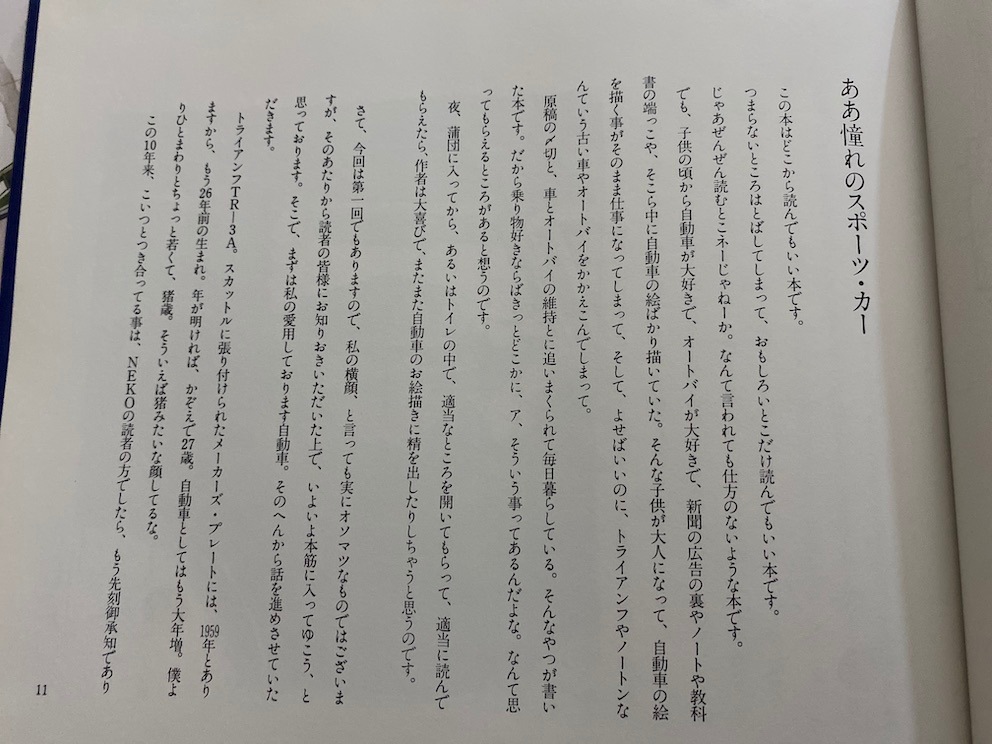 ああ憧れのスポーツ・カー
この本はどこから読んでもいい本です。
つまらないところはとばしてしまって、おもしろいとこだけ読んでもいい本です。
じゃあぜんぜん読むとこネーじゃねーか。なんて言われても仕方のないような本です。
でも、子供の頃から自動車が大好きで、オートバイが大好きで、新聞の広告の裏やノートや教科
書の端っこや、そこら中に自動車の絵ばかり描いていた。そんな子供が大人になって、自動車の絵
を描く事がそのまま仕事になってしまって、そして、よせばいいのに、トライアンフやノートンな
んていう古い車やオートバイをかかえこんでしまって。
原稿の〆切と、車とオートバイの維持とに追いまくられて毎日暮らしている。そんなやつが書い
た本です。だから乗り物好きならばきっとどこかに、ア、そういう事ってあるんだよな。なんて思
ってもらえるところがあると想うのです。
夜、蒲団に入ってから、あるいはトイレの中で、適当なところを開いてもらって、適当に読んで
もらえたら、作者は大喜びで、またまた自動車のお絵描きに精を出したりしちゃうと思うのです。
さて、今回は第一回でもありますので、私の横顔、と言っても実にオソマツなものではございま
すが、そのあたりから読者の皆様にお知りおきいただいた上で、いよいよ本筋に入ってゆこう、と
思っております。そこで、まずは私の愛用しております自動車。そのへんから話を進めさせていた
だきます。
トライアンフTR―3A。スカットルに張り付けられたメーカーズ・プレートには、1959年とあり
ますから、もう26年前の生まれ。年が明ければ、かぞえで27歳。自動車としてはもう大年増。僕よ
りひとまわりとちょっと若くて、猪歳。そういえば猪みたいな顔してるな。
この10年来、こいつとつき合ってる事は、NEKOの読者の方でしたら、もう先刻御承知であり
11